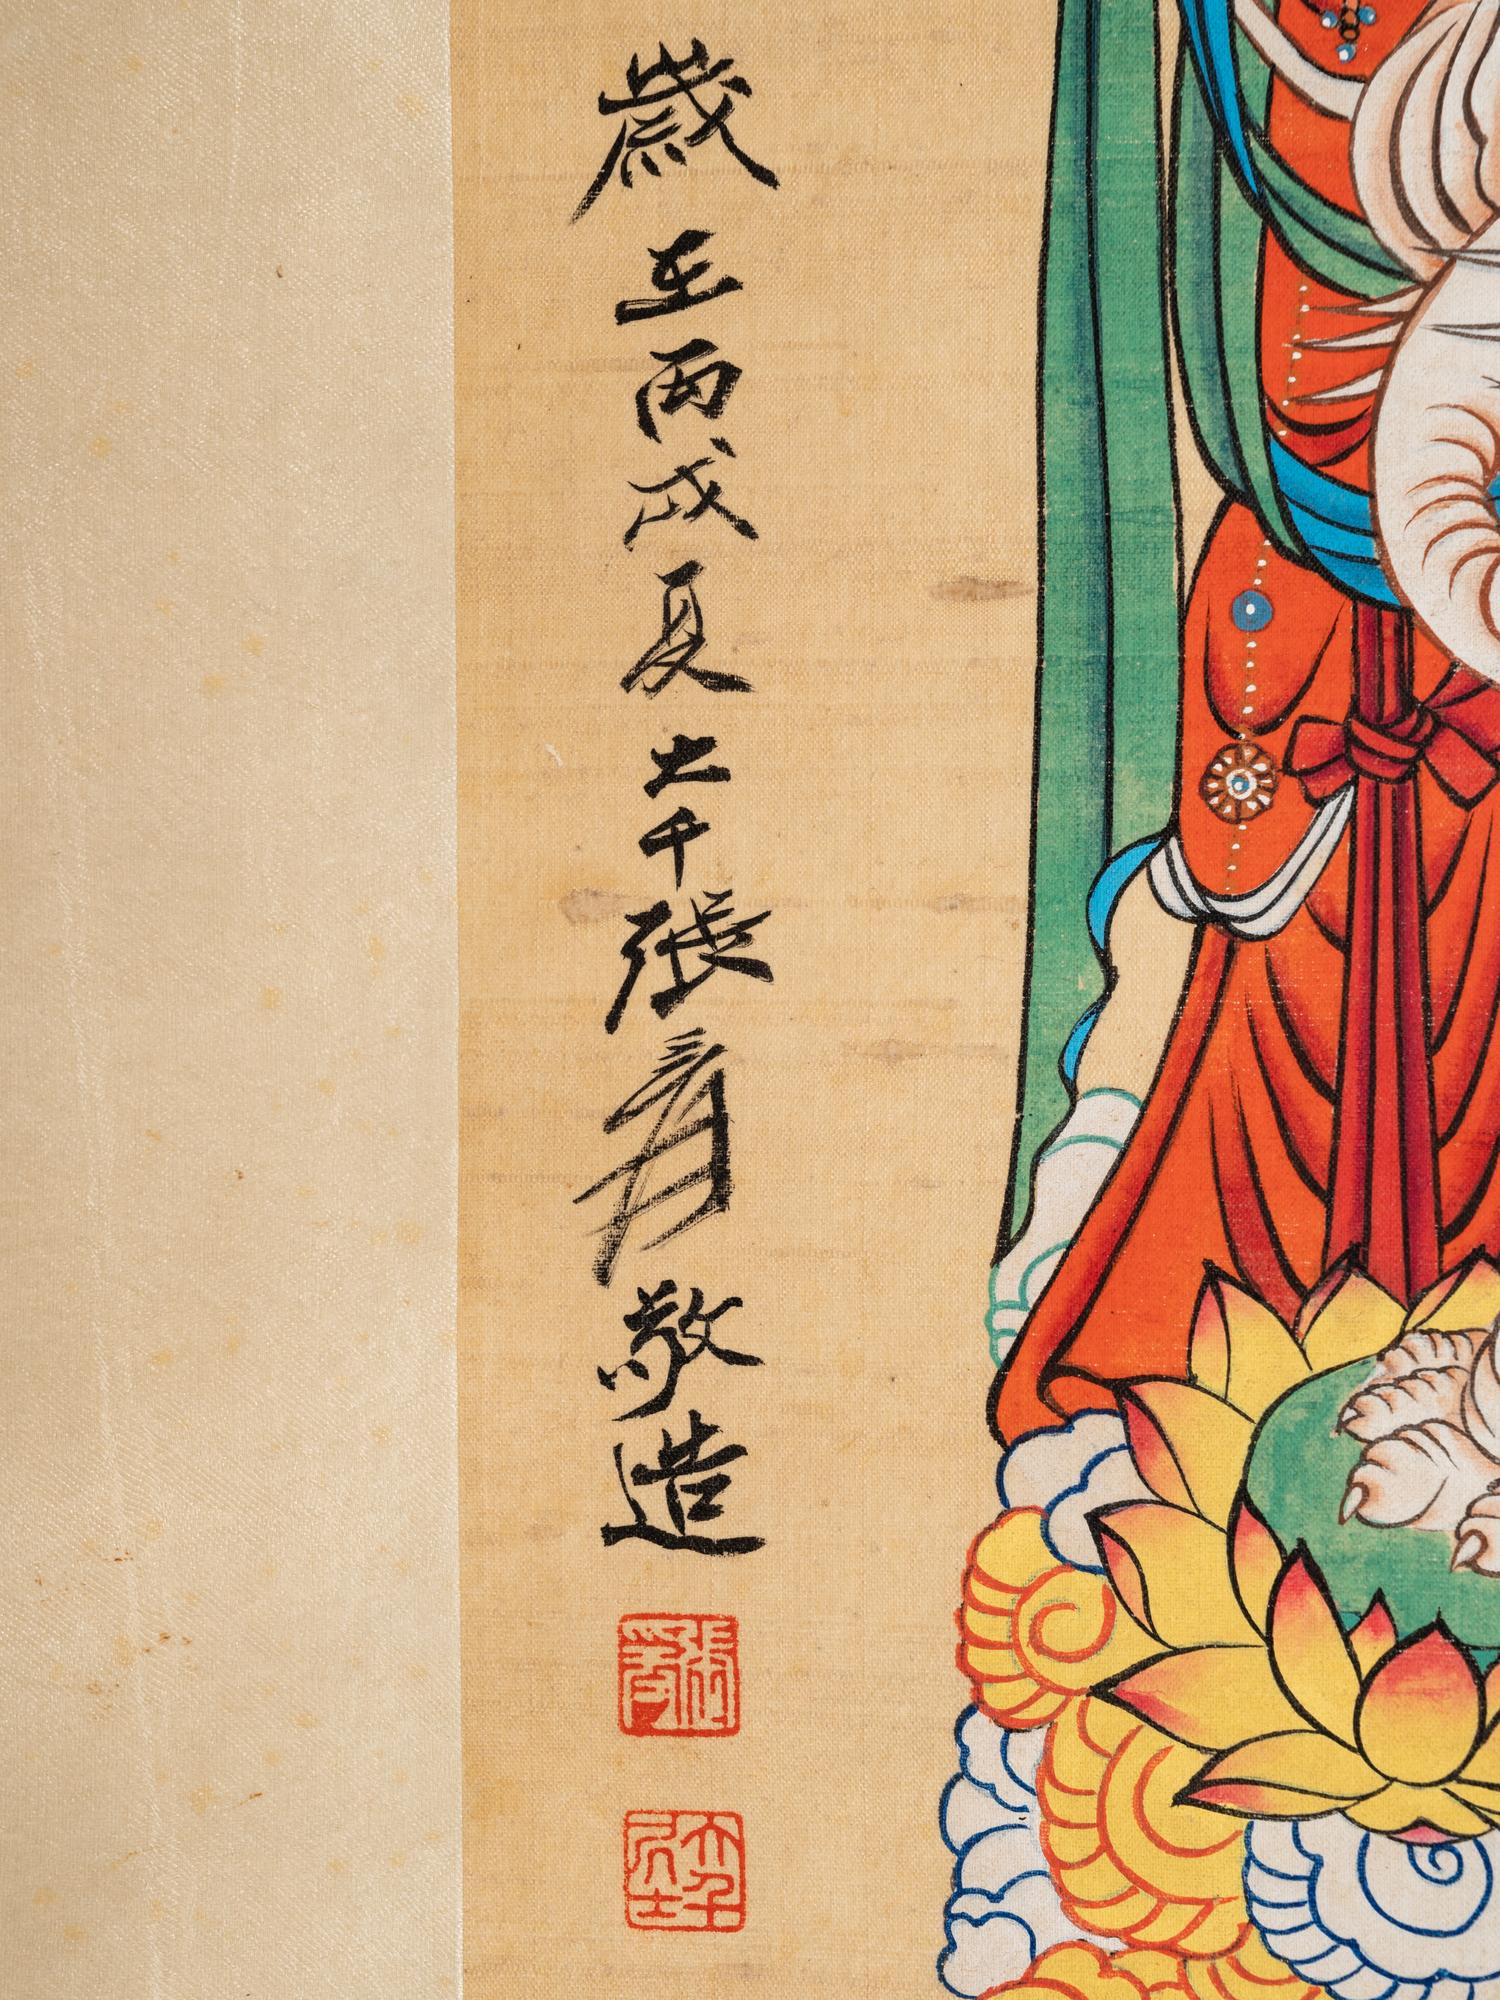 歲在丙戌夏大千張爰敬造
張爰
大千居士